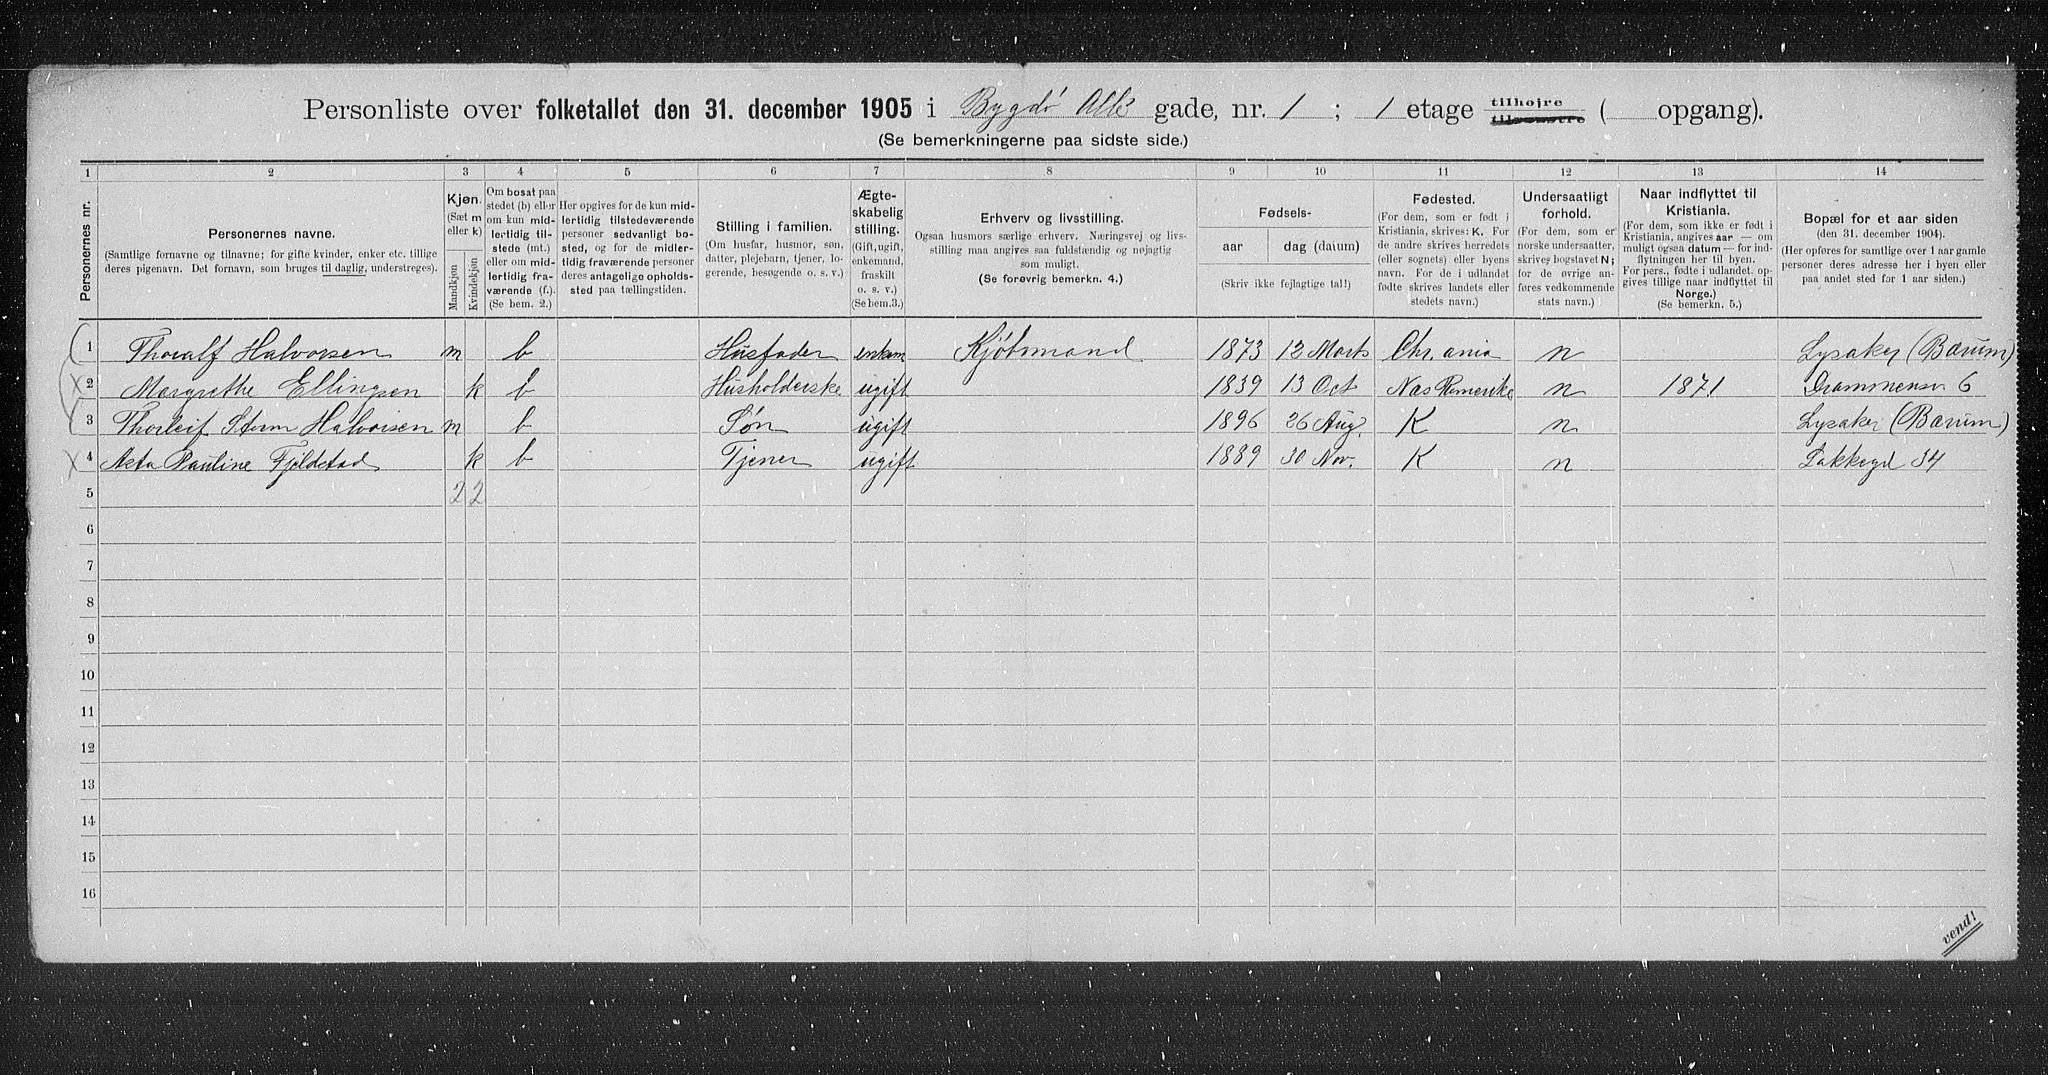 Personliste over folketallet den 31. december 1905 i Bygdø Allé gade, nr. 1 ; 1 etage tilhøjre tilvenstre ( opgang).
(Se bemerkningerne paa sidste side.)
1 2 3 4 5 6 7 8 9 10 11 12 13 14
Personernes nr.
Personernes navne.
(Samtlige fornavne og tilnavne; for gifte kvinder, enker etc. tillige
deres pigenavn. Det fornavn, som bruges til daglig, understreges).
Kjøn.
(Sæt m
eller k)
Mandkjøn
Kvindekjøn
Om bosat paa
stedet (b) eller
om kun mid-
lertidig til-
stede (mt.)
eller om mid-
lertidig fra-
værende (f.).
(Se bem. 2.)
Her opgives for de kun mid-
lertidig tilstedeværende
personer sedvanligt bo-
sted, og for de midler-
tidig fraværende personer
deres antagelige opholds-
sted paa tællingstiden.
Stilling i familien.
(Om husfar, husmor, søn,
datter, plejebarn, tjener, lo-
gerende, besøgende o. s. v.)
Ægte-
skabelig
stilling.
(Gift, ugift,
enkemand,
fraskilt
o. s. v.)
(Se bem.3.)
Erhverv og livsstilling.
Ogsaa husmors særlige erhverv. Næringsvej og livs-
stilling maa angives saa fuldstændig og nøjagtig
som muligt.
(Se forøvrig bemerkn. 4.)
Fødsels-
aar dag (datum)
(Skriv ikke fejlagtige tal!!)
Fødested.
(For dem, som er født i
Kristiania, skrives: K. For
de andre skrives herredets
(eller sognets) eller byens
navn. For de i udlandet
fødte skrives landets eller
stedets navn.)
Undersaatligt
forhold.
(For dem, som er
norske undersaatter,
skrives bogstavet N;
for de øvrige an-
føres vedkommende
stats navn.)
Naar indflyttet til
Kristiania.
(For dem, som ikke er født i
Kristiania, angives aar — om
muligt ogsaa datum — for ind-
flytningen her til byen.
For pers., fødte i udlandet, op-
gives tillige naar indflyttet til
Norge.)
(Se bemerkn. 5.)
Bopæl for et aar siden
(den 31. december 1904).
(Her opføres for samtlige over 1 aar gamle
personer deres adresse her i byen eller
paa andet sted for 1 aar siden.)
1 Thoralf Halvorsen m b Husfader enkem Kjøbmand 1873 12 Marts Chr.ania n Lysaker (Bærum)
2 Margrethe Ellingsen k b Husholderske ugift 1839 13 Oct Næs Romerike n 1871 Drammensv 6
3 Thorleif Storm Halvorsen m b Søn ugift 1896 26 Aug. K n Lysaker (Bærum)
4 Asta Pauline Fjeldstad k b Tjener ugift 1889 30 Nov. K n Lakkegd 34
5 2 2
6
7
8
9
10
11
12
13
14
15
16
vend!